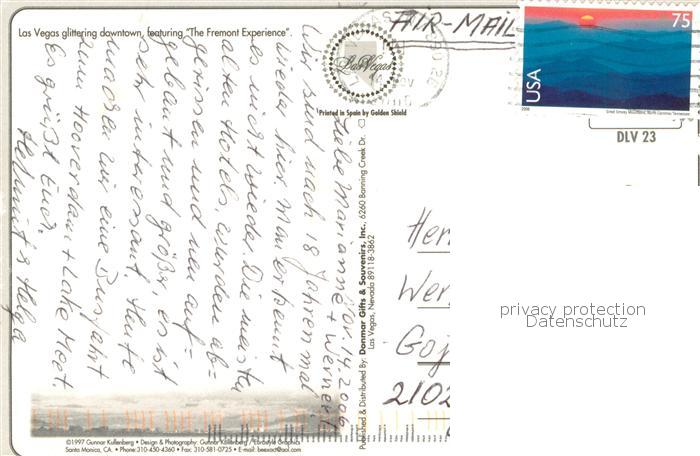 Las Vegas glittering downtown, featuring "The Fremont Experience".
AIR-MAIL
75
USA
2006
Great Smoky Mountains, North Carolina/Tennessee
Las Vegas
Printed in Spain by Golden Shield
DLV 23
Nov. 14. 2006
Liebe Marianne + Werner!
Wir sind nach 18 Jahren mal
wieder hier. Man erkennt
es nicht wieder. Die meisten
alten Hotels, wurden ab-
gerissen und neu auf-
gebaut und größer, es ist
sehr interessant. Heute
machen wir eine Busfahrt
zum Hooverdam + Lake Meet.
Es grüßt Euch
Helmut & Helga
Published & Distributed By: Donmar Gifts & Souvenirs, Inc., 6260 Banning Creek Dr.
Las Vegas, Nevada 89118-3862
Her
Wer
Goj
2102
privacy protection
Datenschutz
©1997 Gunnar Kullenberg • Design & Photography: Gunnar Kullenberg / Eurostyle Graphics
Santa Monica, CA. • Phone:310-450-4360 • Fax: 310-581-0725 • E-mail: beexact@aol.com